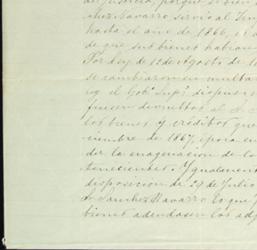 de justicia, porque si bien
chez Navarro sirvió al Im
hasta el año de 1866, el
de que sus bienes habian
Por ley de 12 de Agosto de 1
se cambiaron en multa
ego el Gobº Supº dispuso
fuesen devueltos al S. S
los bienes y créditos que
ciembre de 1867, época en
der la enagenacion de lo
tenecientes. Ygualmente
disposicion de 29 de Julio
Sanchez Navarro lo que
bienes adeudasen los adj